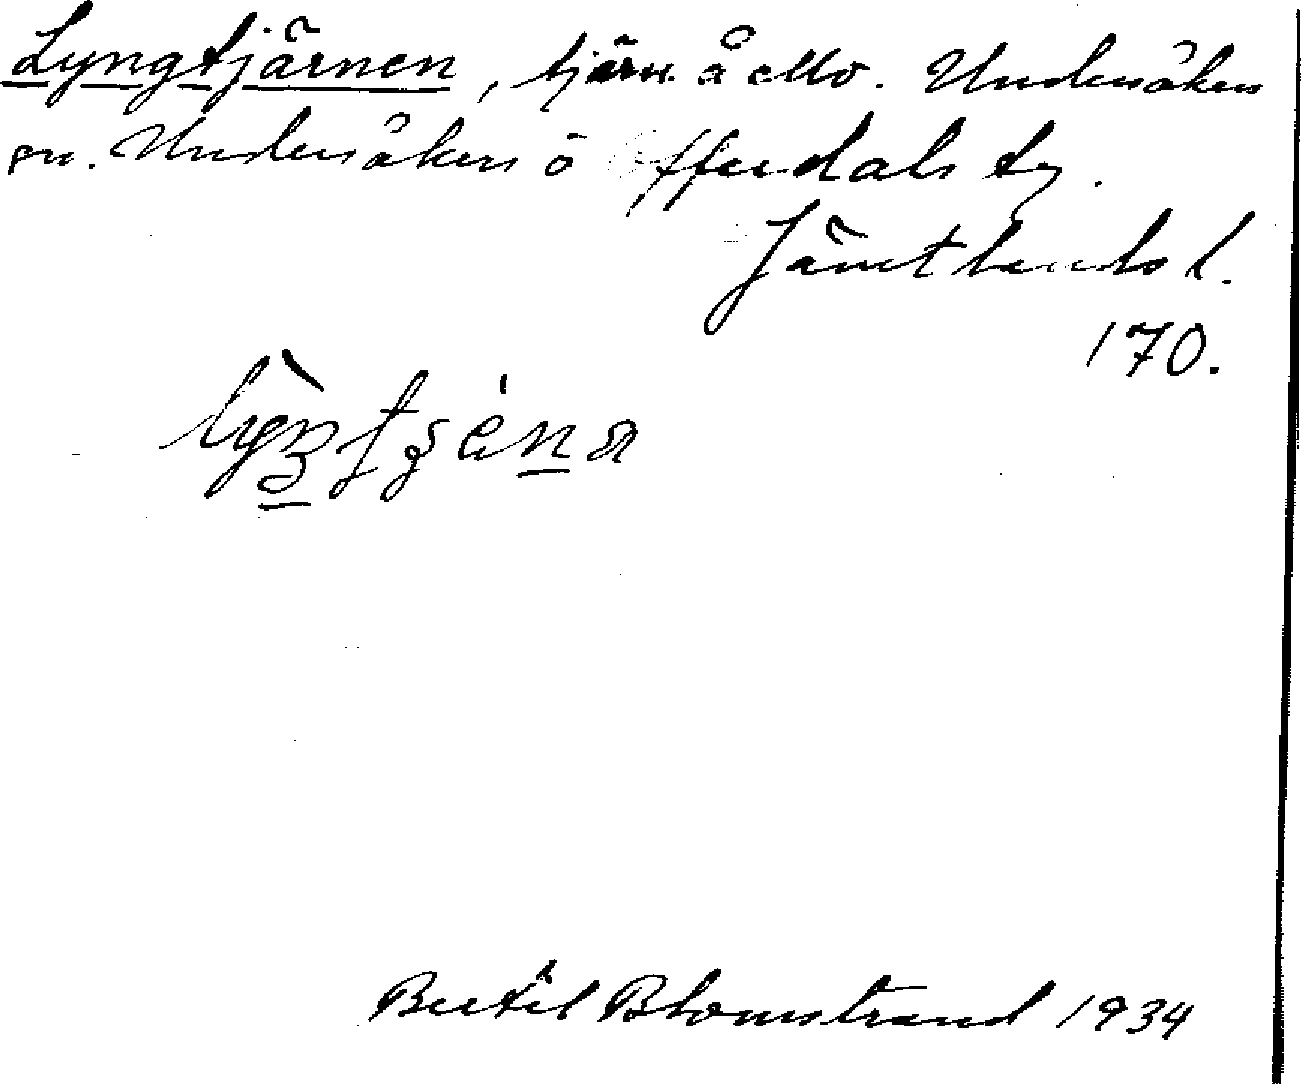 Lyngtjärnen, tjärn å Mo. Undersåkers
sn. Undersåkers o Offerdals tg.
Jämtlands l.
170.
Bertil Blomstrand 1934